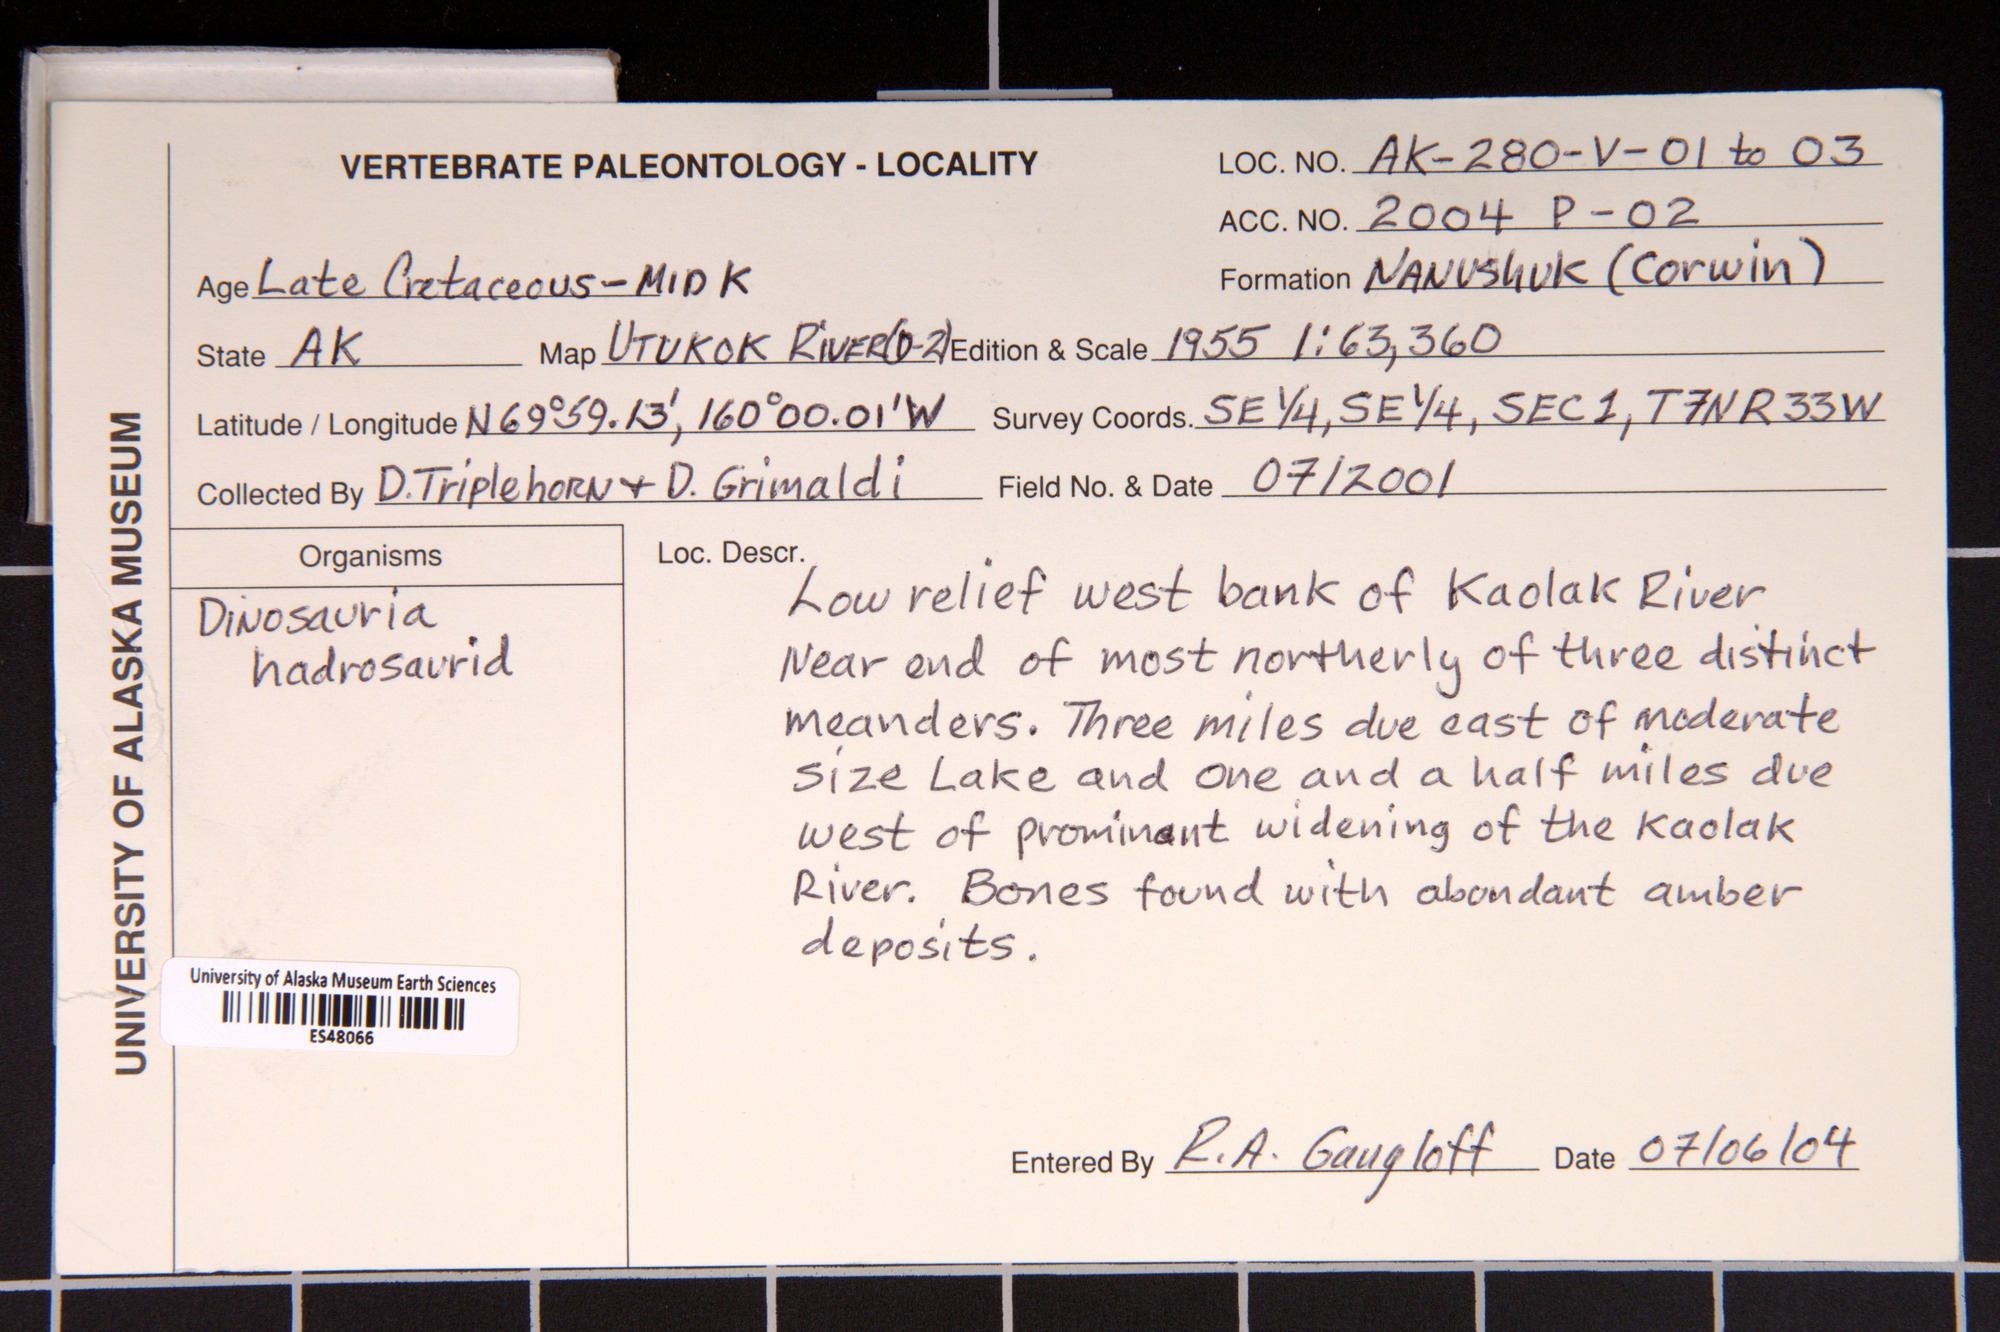 VERTEBRATE PALEONTOLOGY - LOCALITY
LOC. NO. AK-280-V-01 to 03
ACC. NO. 2004 P-02
Age Late Cretaceous-MID K
Formation NANUSHUK (Corwin)
State AK Map UTUKOK RIVER(D-2) Edition & Scale 1955 1:63,360
Latitude / Longitude N69°59.13', 160°00.01'W Survey Coords. SE 1/4, SE 1/4, SEC 1, T7N R33W
Collected By D. Triplehorn + D. Grimaldi Field No. & Date 07/2001
Organisms
Dinosauria
hadrosaurid
Loc. Descr.
Low relief west bank of Kaolak River
Near end of most northerly of three distinct
meanders. Three miles due east of moderate
size Lake and one and a half miles due
west of prominant widening of the Kaolak
River. Bones found with abundant amber
deposits.
UNIVERSITY OF ALASKA MUSEUM
University of Alaska Museum Earth Sciences
ES48066
Entered By R.A. Gangloff Date 07/06/04